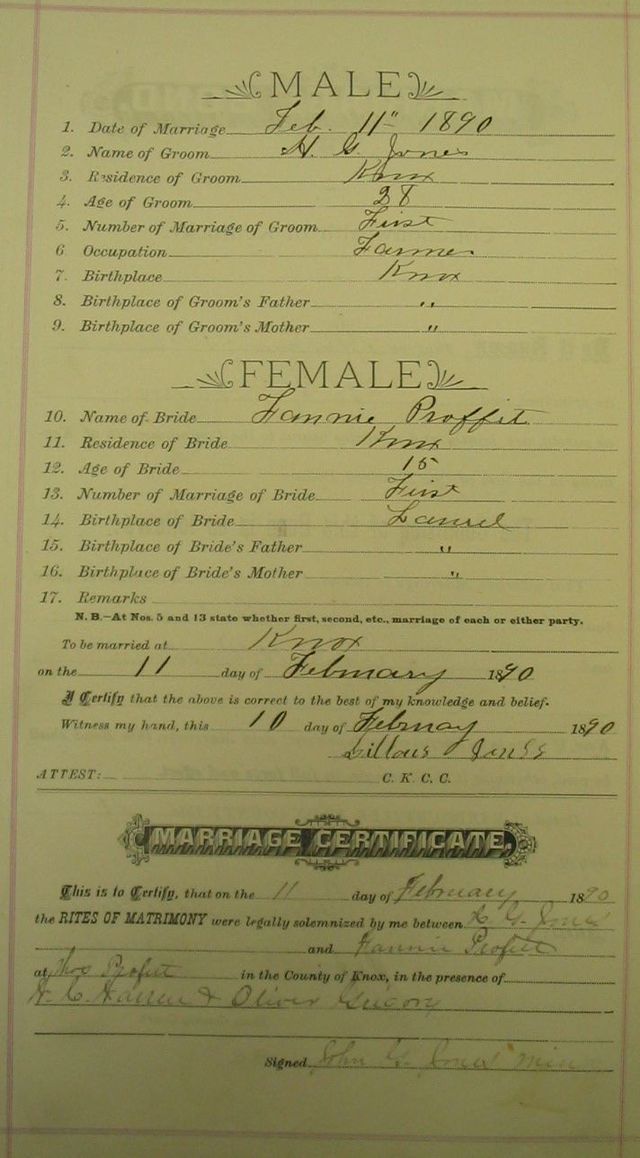 MALE
1. Date of Marriage Feb. 11" 1890
2. Name of Groom H. G. Jones
3. Residence of Groom Knox
4. Age of Groom 28
5. Number of Marriage of Groom First
6 Occupation Farmer
7. Birthplace Knox
8. Birthplace of Groom's Father "
9. Birthplace of Groom's Mother "
FEMALE
10. Name of Bride Fannie Proffit
11. Residence of Bride Knox
12. Age of Bride 15
13. Number of Marriage of Bride First
14. Birthplace of Bride Laurel
15. Birthplace of Bride's Father "
16. Birthplace of Bride's Mother "
17. Remarks
N. B.—At Nos. 5 and 13 state whether first, second, etc., marriage of each or either party.
To be married at Knox
on the 11 day of February 1890
I Certify that the above is correct to the best of my knowledge and belief.
Witness my hand, this 10 day of Februay 1890
Jones
ATTEST: C. K. C. C.
MARRIAGE CERTIFICATE.
This is to Certify, that on the 11 day of February 1890
the RITES OF MATRIMONY were legally solemnized by me between H. G. Jones
and Fannie Profitt
at Thos Profitt in the County of Knox, in the presence of
& Oliver Gregory
Signed John G. Jones min